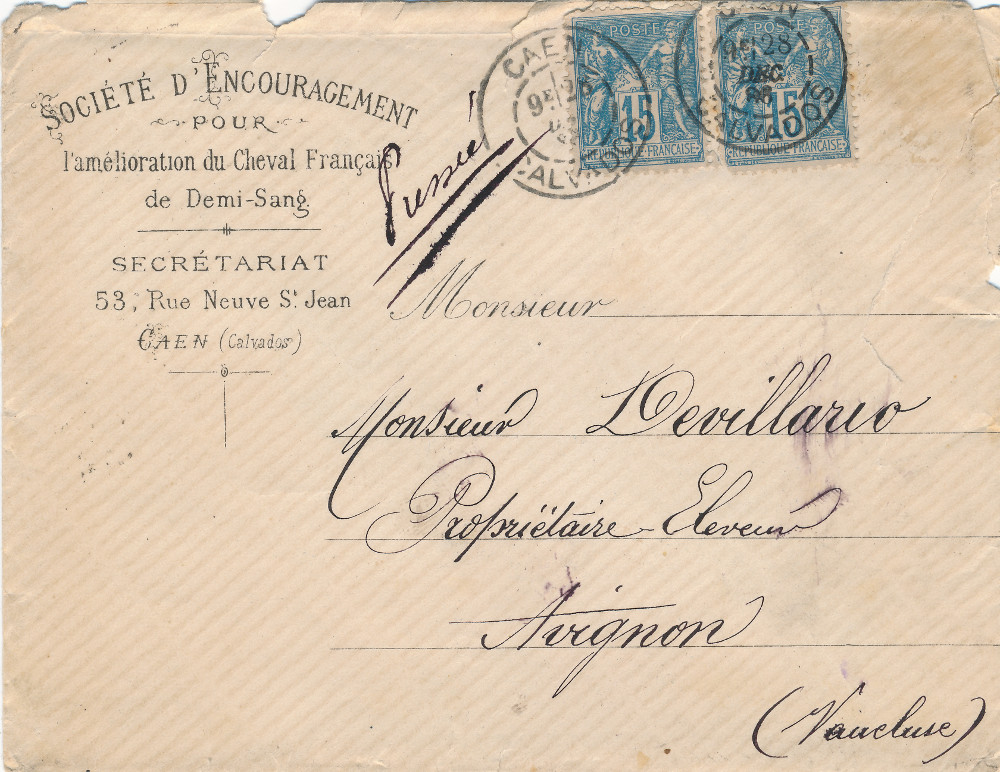 SOCIÉTÉ D'ENCOURAGEMENT
POUR
l'amélioration du Cheval Français
de Demi-Sang.
SECRÉTARIAT
53, Rue Neuve St Jean
CAEN (Calvados)
CAEN
CALVADOS
POSTE
15
REPUBLIQUE FRANÇAISE
POSTE
15
REPUBLIQUE FRANÇAISE
CAEN
28
DEC
CALVADOS
Pressée
Monsieur
Monsieur Devillario
Propriétaire-Eleveur
Avignon
(Vaucluse)